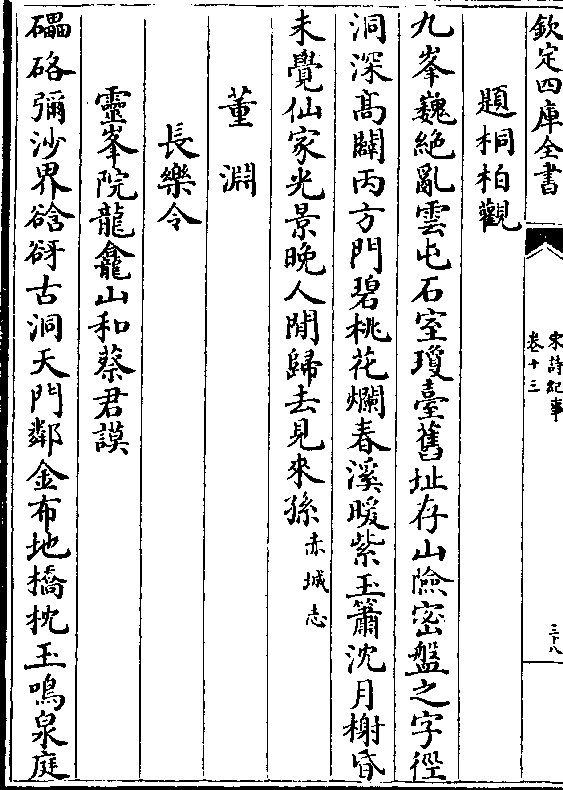 欽定四庫全書
宋詩紀事
卷十三
三十八
題桐柏觀
九峯巍絶亂雲屯石室瓊臺舊址存山險密盤之字徑
洞深髙闢丙方門碧桃花爛春溪暖紫玉簫沈月榭昏
未覺仙家光景晚人閒歸去見來孫赤城志
董淵
長樂令
靈峯院龍龕山和蔡君謨
礧硌彌沙界谽谺古洞天門鄰金布地橋枕玉鳴泉庭